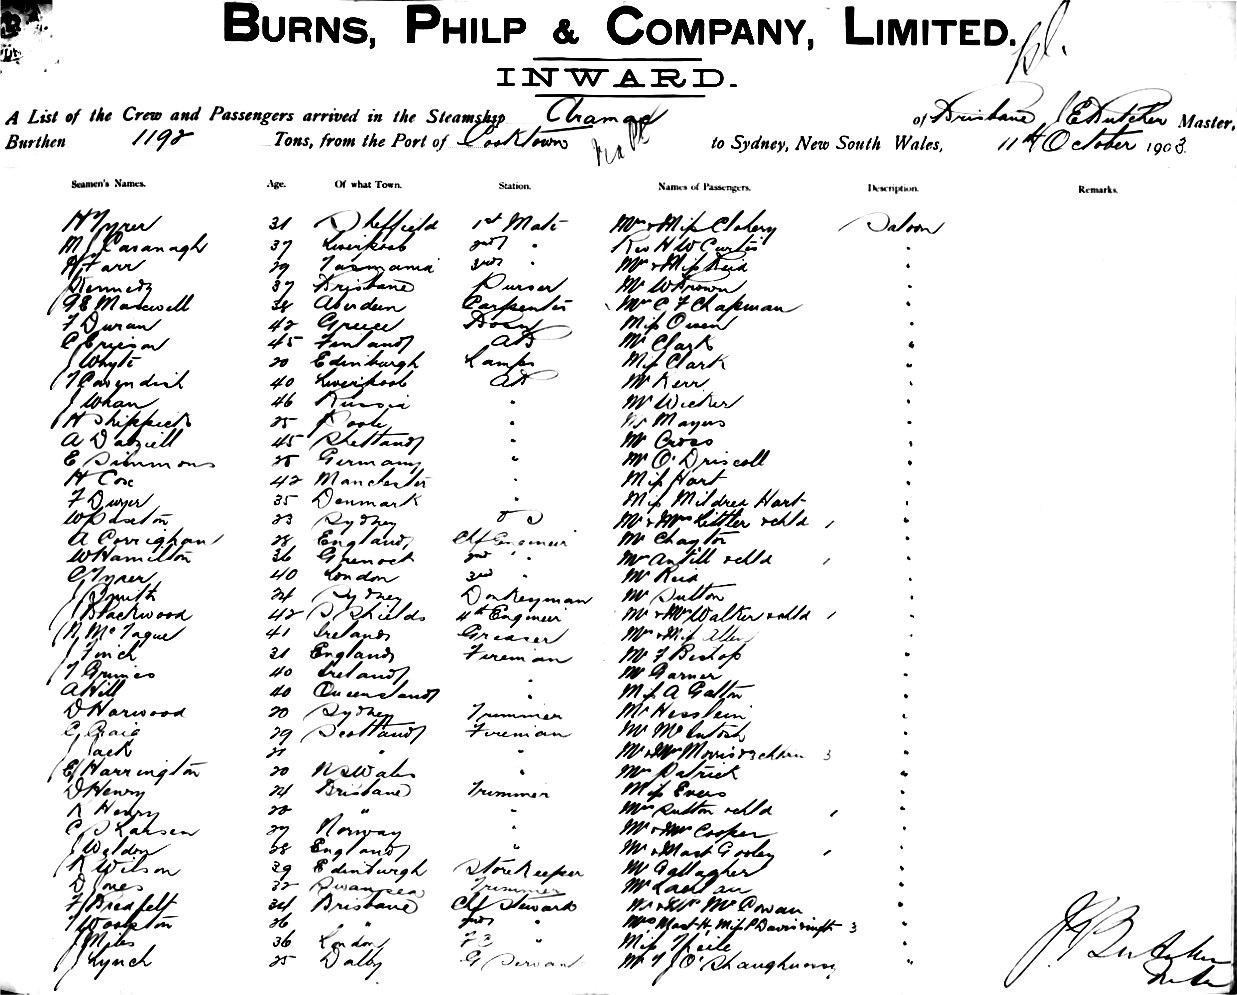 BURNS, PHILP & COMPANY, LIMITED.
INWARD.
A List of the Crew and Passengers arrived in the Steamship Aramac of Brisbane Master,
Burthen 1192 Tons, from the Port of Cooktown to Sydney, New South Wales, 11th October 1903
Seamen's Names. Age. Of what Town. Station. Names of Passengers. Description. Remarks.
H Tyrer 31 Sheffield 1st Mate Mr & Miss Clohery Saloon
M J Cavanagh 37 Liverpool 2nd " Rev H W Curtis "
H Farr 29 Tasmania 3rd " Mr & Miss Reid "
Kennedy 37 Brisbane Purser Mr W Brown "
G E Maxwell 38 Aberdeen Carpenter Mr C F Chapman "
F Duran 42 Greece Bosn Miss Owen "
C Ericson 45 Finland AB Mr Clark "
J Whyte 20 Edinburgh Lamps Miss Clark "
T Cavendish 40 Liverpool AB Mr Kerr "
J Whan 46 Russia " Mr Wicker "
H Shippick 25 Poole " Mayers "
A Dalziell 45 Shetland " Mr Cross "
E Simmons 28 Germany " Mr O'Driscoll "
H Cox 42 Manchester " Miss Hart "
F Dwyer 35 Denmark Miss Mildred Hart "
W Paxton 23 Sydney Mr & Mrs Littler & chld 1 "
A Corrighan 28 England Chf Engineer Mr Chayton "
W Hamilton 36 Greenock 2nd " Mr Antill & chld 1 "
C Tyrer 40 London 3rd " Mr Reid "
J Smith 24 Sydney Donkeyman Mr Sutton "
J Blackwood 42 S Shields 4th Engineer Mr & Mrs Walker & chld 1 "
N McTague 41 Ireland Greaser Mr & Miss Allen "
J Finch 31 England Fireman Mr F Bishop "
T Grimes 40 Ireland " Mr Garner "
A Hill 40 Queensland " Miss A Galton "
D Harwood 20 Sydney Trimmer Mr Hesslein "
C Craig 29 Scotland Fireman Mr McIntosh "
J Jack 21 " " Mr & Mrs Morris & chldn 3 "
E Harrington 20 N S Wales " Mrs Patrick "
D Henry 24 Brisbane Trimmer Miss Evers "
R Henry 22 " " Mrs Sutton & chld 1 "
C P Larsen 27 Norway " Mr & Mrs Cooper "
J Weldon 28 England " Mr & Mast Gooley 1 "
R Wilson 39 Edinburgh Storekeeper Mr Gallagher "
D Jones 32 Swansea Trimmer Mr "
F Bredfelt 34 Brisbane Chf Steward Mr & Mrs McCowan "
T Woolston 26 " 2nd " Mrs Mast H, Miss P 3 "
J Miles 36 London " Miss Theile "
J Lynch 25 Dalby G Servant Mr T J O'Shaughnessy "